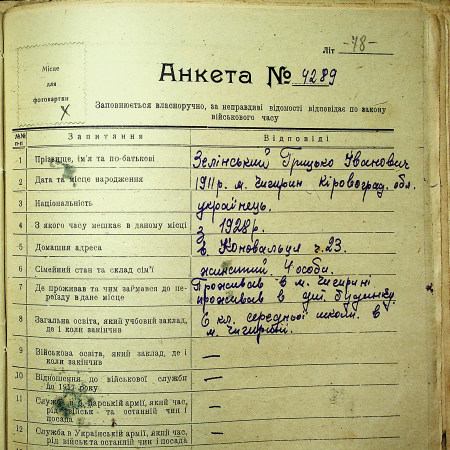 Літ -78-
Місце
для
фотокартки
Анкета № 4289
Заповнюється власноручно, за неправдиві відомості відповідає по закону
військового часу
№№ п-п Запитання Відповіді
1 Прізвище, ім'я та по-батькові Зелінський Грицько Іванович
2 Дата та місце народження 1911 р. м. Чигирин Кіровоград. обл.
3 Національність українець.
4 З якого часу мешкає в даному місці з 1928 р.
5 Домашня адреса в. Коновальця ч. 23.
6 Сімейний стан та склад сім'ї 4 особи.
7 Де проживав та чим займався до пе-
реїзду в дане місце
Проживав в м. Чигирині
проживав в будинку.
8 Загальна освіта, який учбовий заклад,
де і коли закінчив
6 кл. середньої школи. в
м. Чигирині.
9 Військова освіта, який заклад, де і
коли закінчив —
10 Відношення до військової служби
до 1917 року —
11 Служба в царській армії, який час,
рід військ та останній чин і
посада —
12 Служба в Українській армії, який час,
рід військ та останній чин і посада —